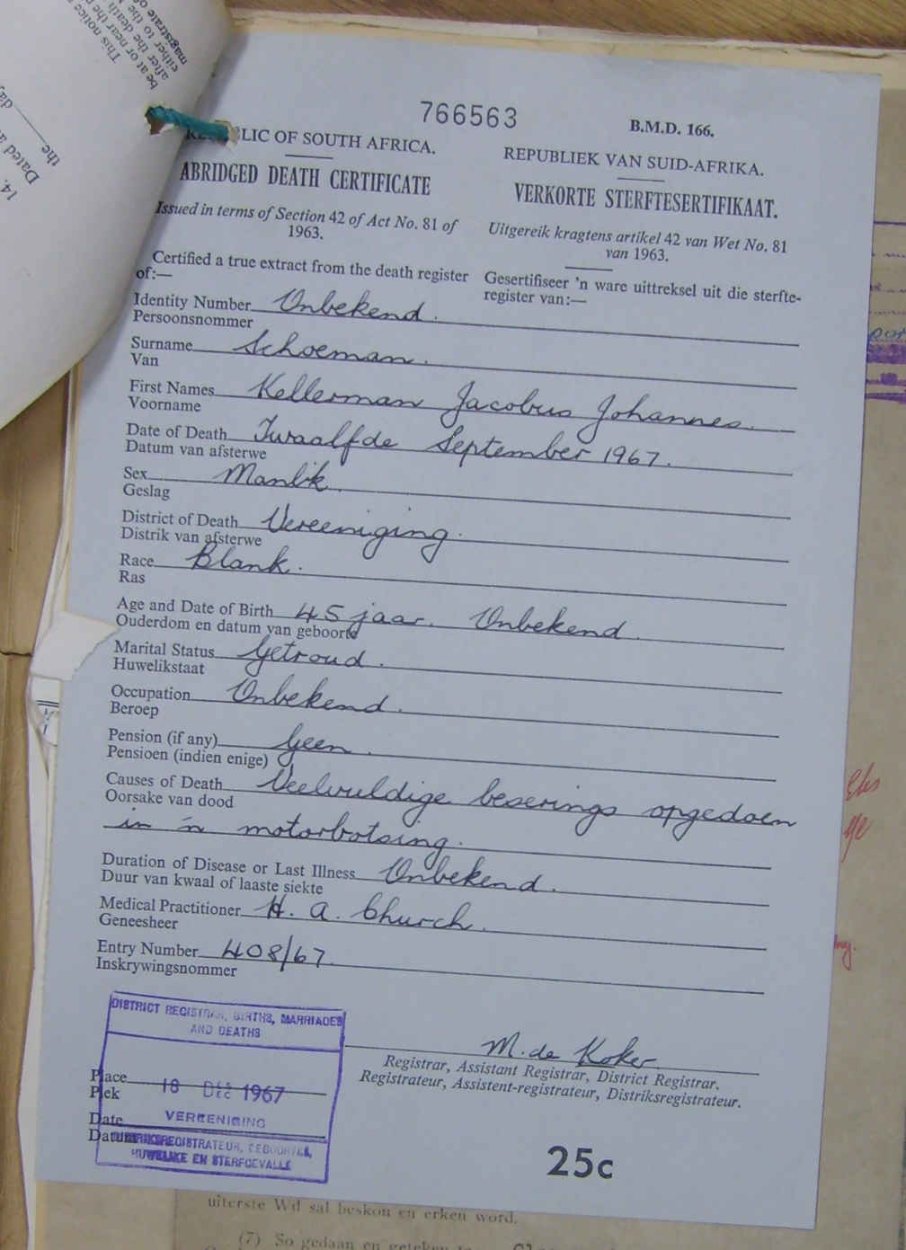 This notice
be at or near the
after the death
either to the
magistrate
Dated
the
day
14.
766563
B.M.D. 166.
REPUBLIC OF SOUTH AFRICA.
REPUBLIEK VAN SUID-AFRIKA.
ABRIDGED DEATH CERTIFICATE
VERKORTE STERFTESERTIFIKAAT.
Issued in terms of Section 42 of Act No. 81 of
1963.
Uitgereik kragtens artikel 42 van Wet No. 81
van 1963.
Certified a true extract from the death register
of:—
Gesertifiseer 'n ware uittreksel uit die sterfte-
register van:—
Identity Number Onbekend.
Persoonsnommer
Surname Schoeman.
Van
First Names Kellerman Jacobus Johannes.
Voorname
Date of Death Twaalfde September 1967.
Datum van afsterwe
Sex Manlik
Geslag
District of Death Vereeniging.
Distrik van afsterwe
Race Blank.
Ras
Age and Date of Birth 45 jaar. Onbekend.
Ouderdom en datum van geboorte
Marital Status Getroud.
Huwelikstaat
Occupation Onbekend.
Beroep
Pension (if any) Geen.
Pensioen (indien enige)
Causes of Death Veelvuldige beserings opgedoen
Oorsake van dood
in 'n motorbotsing.
Duration of Disease or Last Illness Onbekend.
Duur van kwaal of laaste siekte
Medical Practitioner H. A. Church.
Geneesheer
Entry Number 408/67.
Inskrywingsnommer
DISTRICT REGISTRAR, BIRTHS, MARRIAGES
AND DEATHS
M. de Koker
Registrar, Assistant Registrar, District Registrar.
Registrateur, Assistent-registrateur, Distriksregistrateur.
Place
Plek
18 DEC 1967
VEREENIGING
Date
Datum
DISTRIKSREGISTRATEUR, GEBOORTES,
HUWELIKE EN STERFGEVALLE
25c
uiterste Wil sal beskou en erken word.
(7) So gedaan en geteken